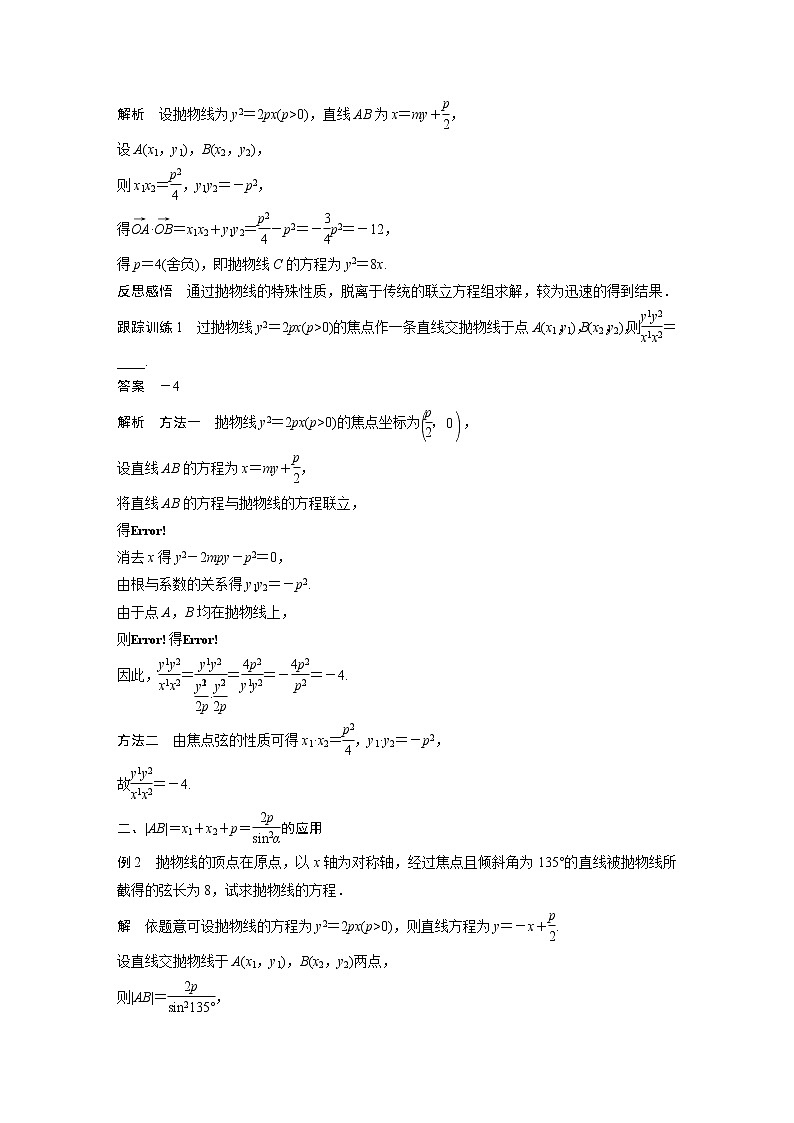 解析　设抛物线为 y²＝2px(p>0)，直线 AB 为 x＝my＋p/2，
设 A(x₁，y₁)，B(x₂，y₂)，
则 x₁x₂＝p²/4，y₁y₂＝－p²，
得OA→·OB→＝x₁x₂＋y₁y₂＝p²/4－p²＝－3/4p²＝－12，
得 p＝4(舍负)，即抛物线 C 的方程为 y²＝8x.
反思感悟　通过抛物线的特殊性质，脱离于传统的联立方程组求解，较为迅速的得到结果．
跟踪训练 1　过抛物线 y²＝2px(p>0)的焦点作一条直线交抛物线于点 A(x₁，y₁)，B(x₂，y₂)，则y1y2/x1x2＝
____.
答案　－4
解析　方法一　抛物线 y²＝2px(p>0)的焦点坐标为(p/2，0)，
设直线 AB 的方程为 x＝my＋p/2，
将直线 AB 的方程与抛物线的方程联立，
得Error!
消去 x 得 y²－2mpy－p²＝0，
由根与系数的关系得 y₁y₂＝－p².
由于点 A，B 均在抛物线上，
则Error! 得Error!
因此，y1y2/x1x2＝y1y2/(y²/2p·y²/2p)＝4p²/y1y2＝－4p²/p²＝－4.
方法二　由焦点弦的性质可得 x₁·x₂＝p²/4，y₁·y₂＝－p²，
故y1y2/x1x2＝－4.
二、|AB|＝x₁＋x₂＋p＝2p/sin²α的应用
例 2　抛物线的顶点在原点，以 x 轴为对称轴，经过焦点且倾斜角为 135°的直线被抛物线所
截得的弦长为 8，试求抛物线的方程．
解　依题意可设抛物线的方程为 y²＝2px(p>0)，则直线方程为 y＝－x＋p/2.
设直线交抛物线于 A(x₁，y₁)，B(x₂，y₂)两点，
则|AB|＝2p/sin²135°，